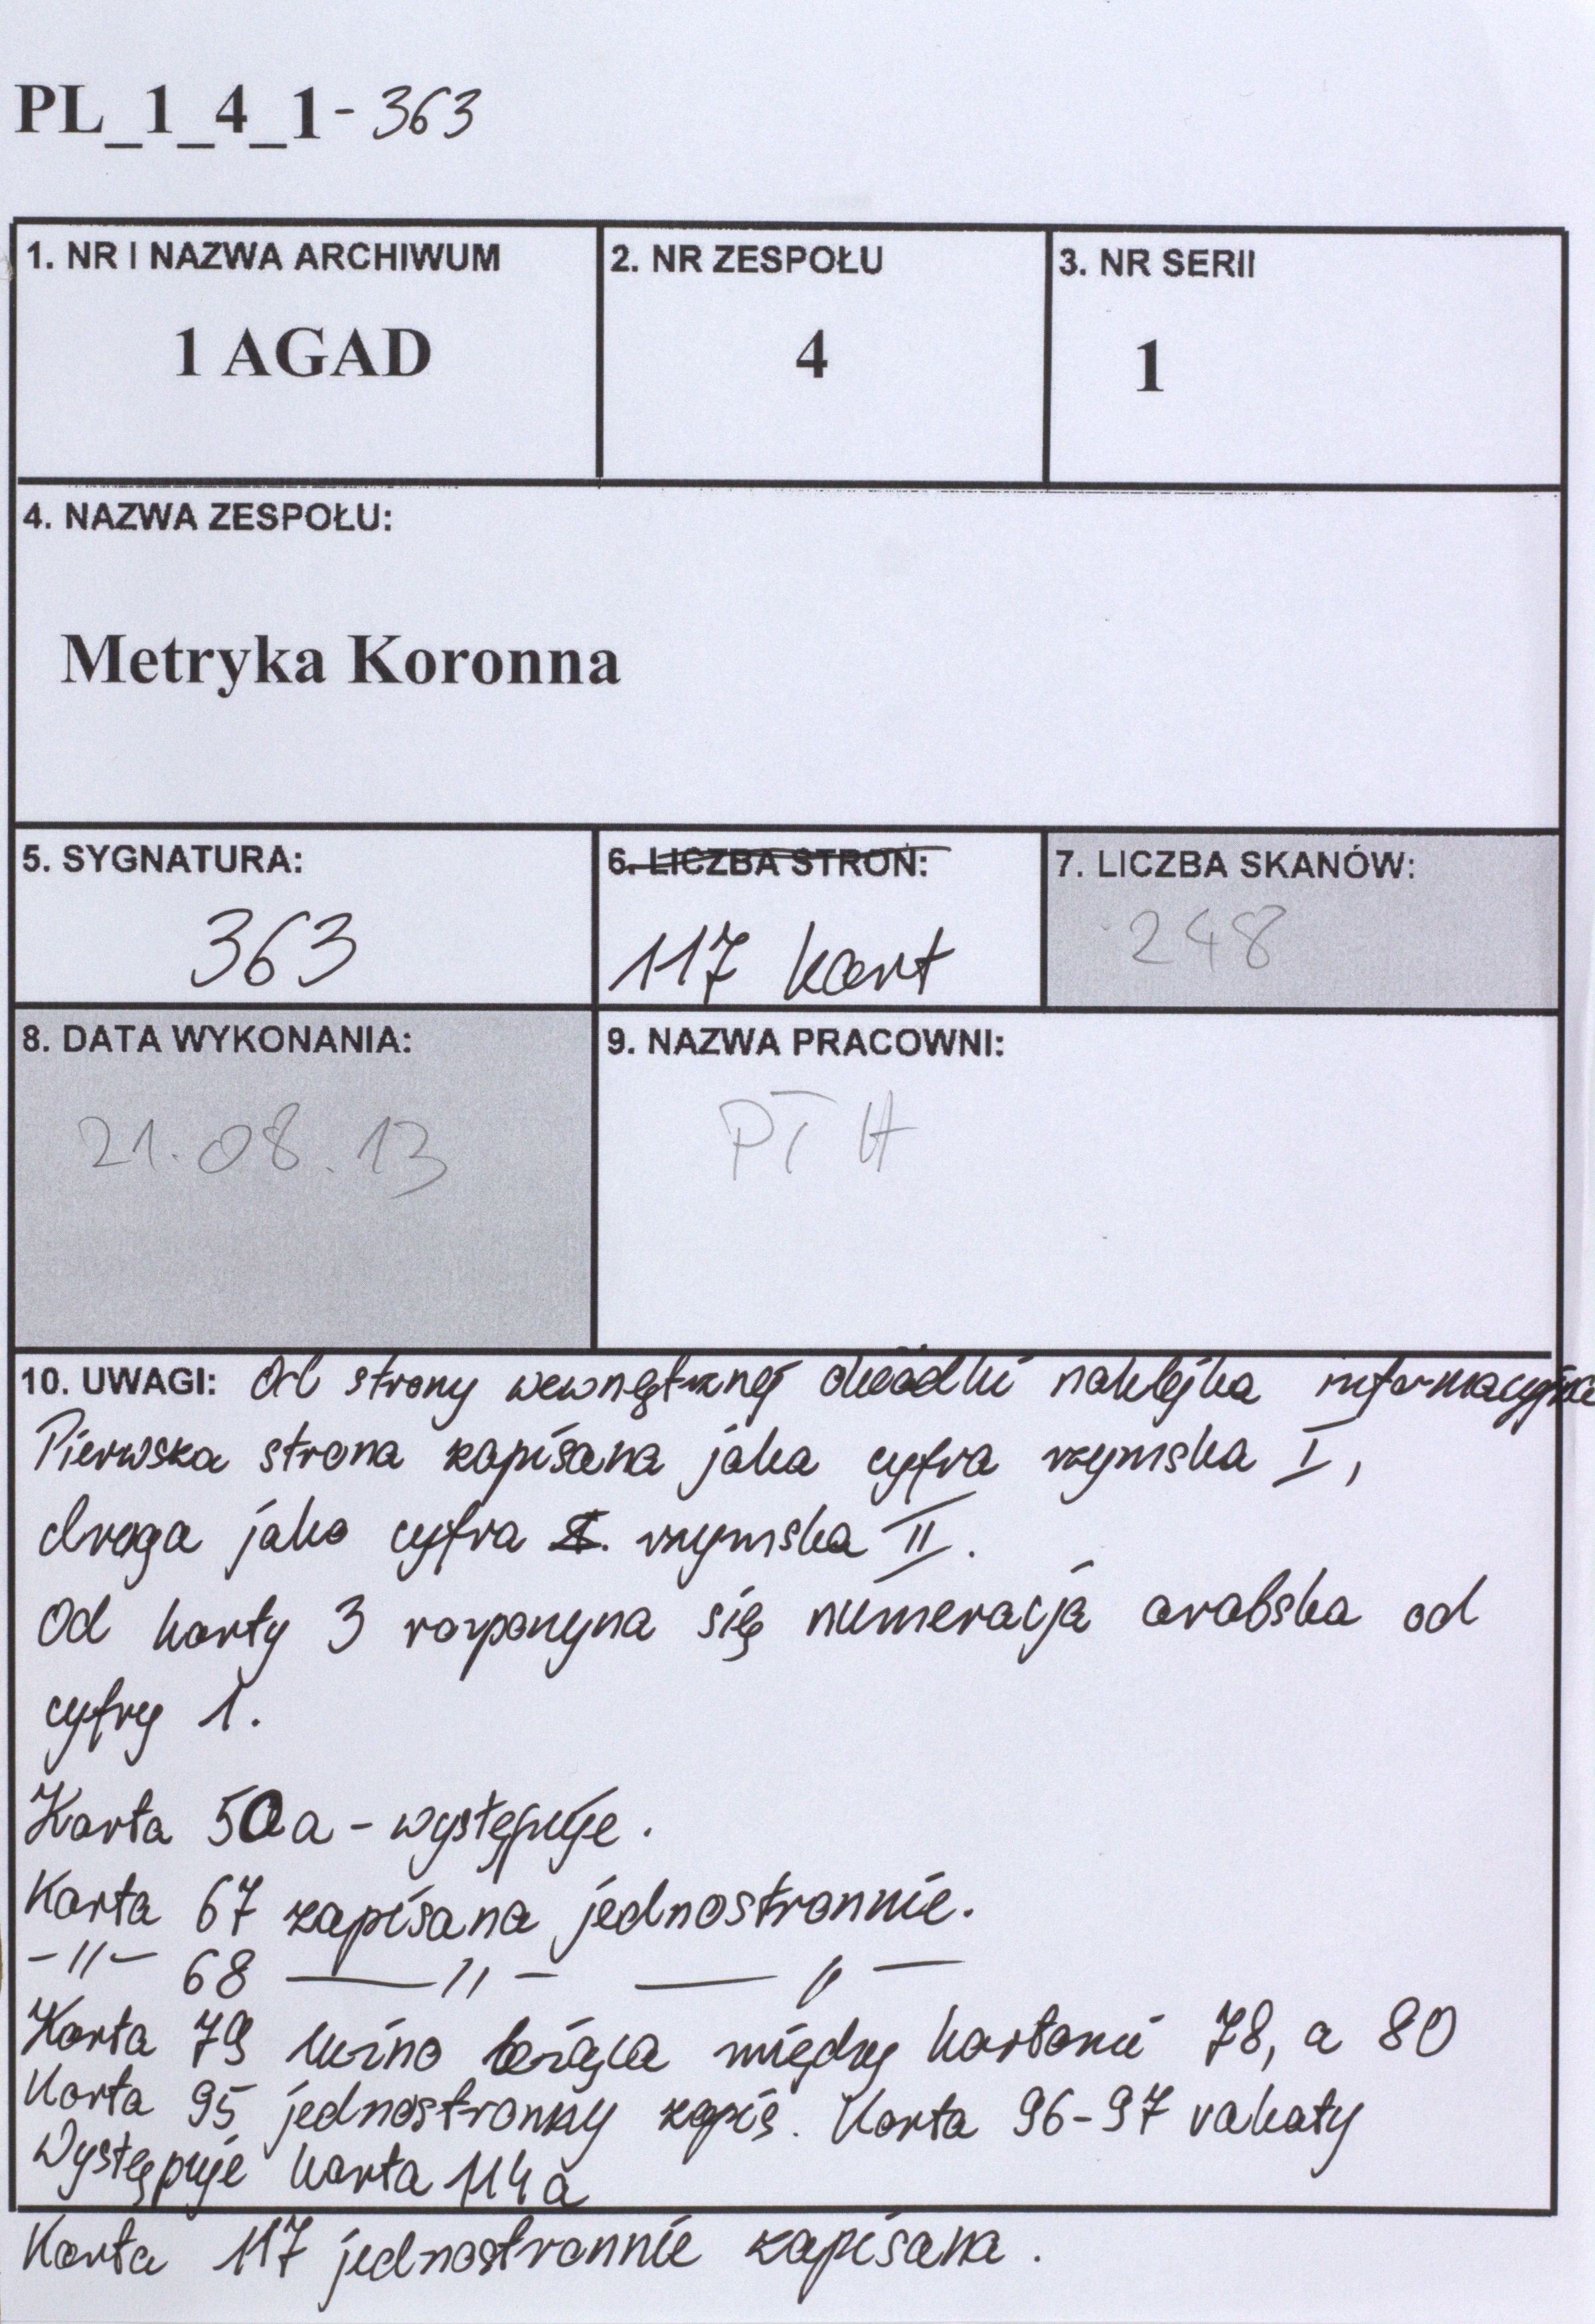 PL_1_4_1-363
1. NR I NAZWA ARCHIWUM
1 AGAD
2. NR ZESPOŁU
4
3. NR SERII
1
4. NAZWA ZESPOŁU:
Metryka Koronna
5. SYGNATURA:
363
6. LICZBA STRON:
117 kart
7. LICZBA SKANÓW:
248
8. DATA WYKONANIA:
21.08.13
9. NAZWA PRACOWNI:
PTH
10. UWAGI: Od strony wewnętrznej okładki naklejka informacyjna
Pierwsza strona zapisana jaka cyfra rzymska I,
druga jako cyfra rzymska II.
Od karty 3 rozpoczyna się numeracja arabska od
cyfry 1.
Karta 50a - występuje.
Karta 67 zapisana jednostronnie.
-"- 68 -"- -"-
Karta 79 luźno leżąca między kartami 78, a 80
Karta 95 jednostronny zapis. Karta 96-97 vakaty
Występuje karta 114a
Karta 117 jednostronnie zapisana.